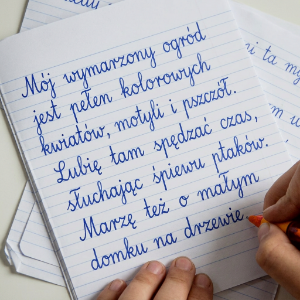 Mój wymarzony ogród
jest pełen kolorowych
kwiatów, motyli i pszczół.
Lubię tam spędzać czas,
słuchając śpiewu ptaków.
Marzę też o małym
domku na drzewie
ni ta my